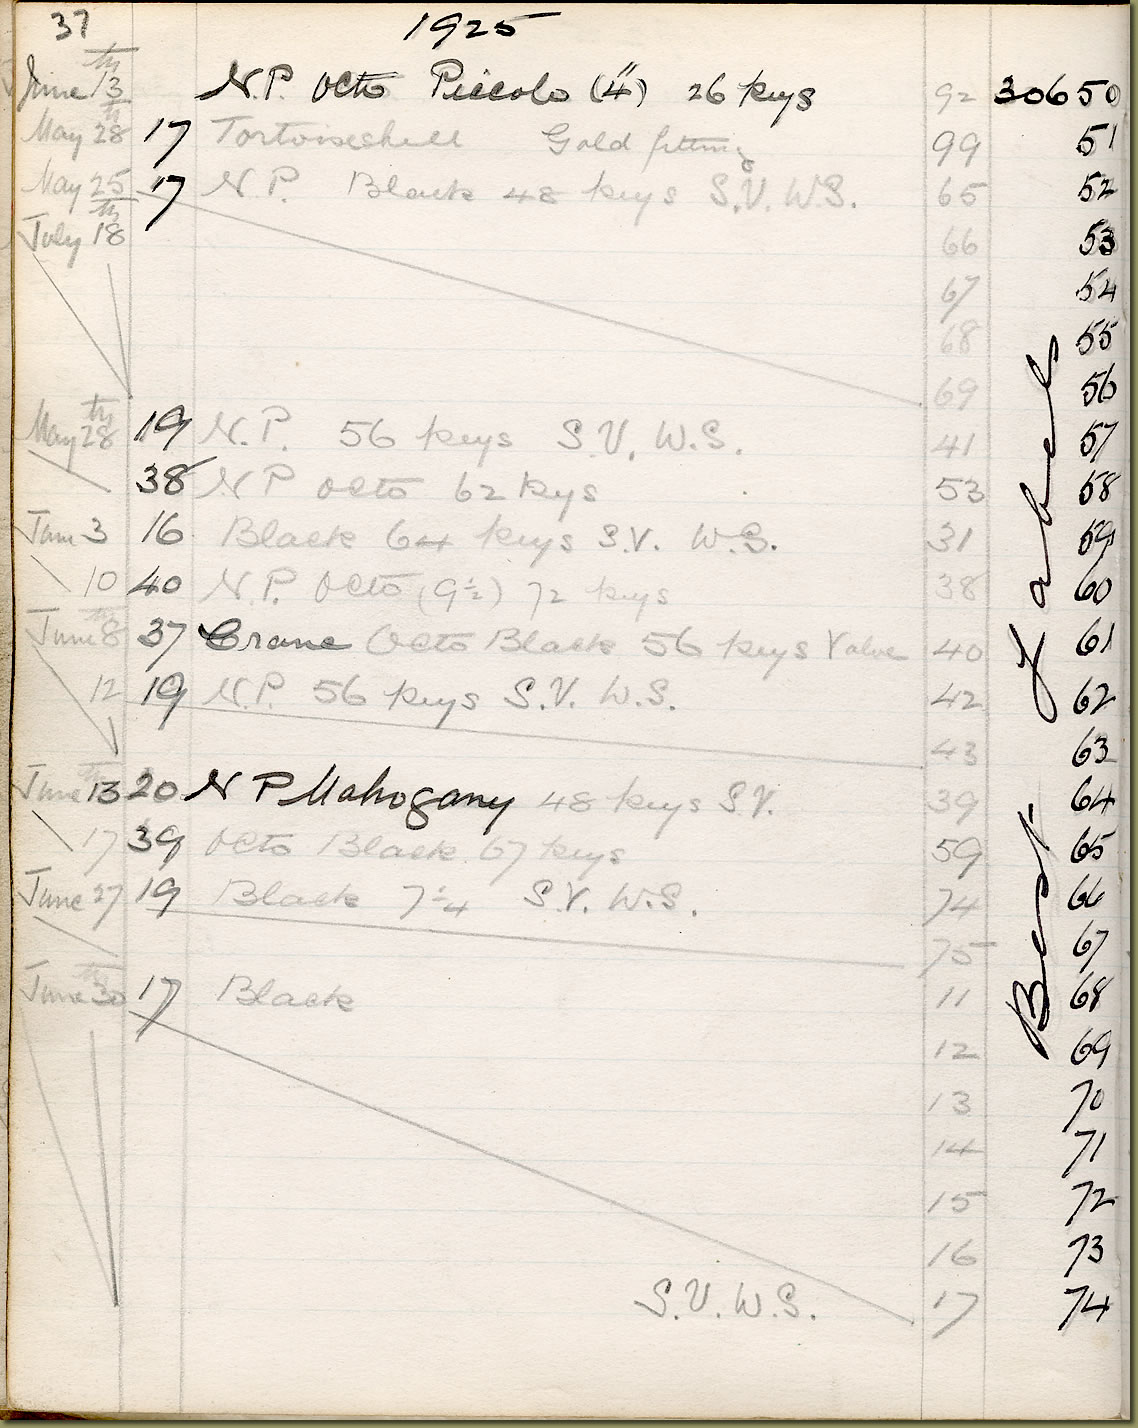 37 1925
June 13th N.P. Octo Piccolo (4") 26 keys 92 30650
May 28th 17 Tortoiseshell Gold fitting 99 51
May 25 17 N.P. Black 48 keys S.V. W.S. 65 52
July 18th 66 53
67 54
68 55
69 56
May 28th 19 N.P. 56 keys S.V. W.S. 41 57
38 N P Octo 62 keys 53 58
June 3 16 Black 64 keys S.V. W.S. 31 59
10 40 N.P. Octo (9½) 72 keys 38 60
June 8th 37 Crane Octo Black 56 keys Valve 40 61
12 19 N.P. 56 keys S.V. W.S. 42 62
43 63
June 13th 20 N P Mahogany 48 keys S.V. 39 64
17 39 Octo Black 67 keys 59 65
June 27 19 Black 7¼ S.V. W.S. 74 66
75 67
June 30th 17 Black 11 68
12 69
13 70
14 71
15 72
16 73
S.V. W.S. 17 74
Best Label